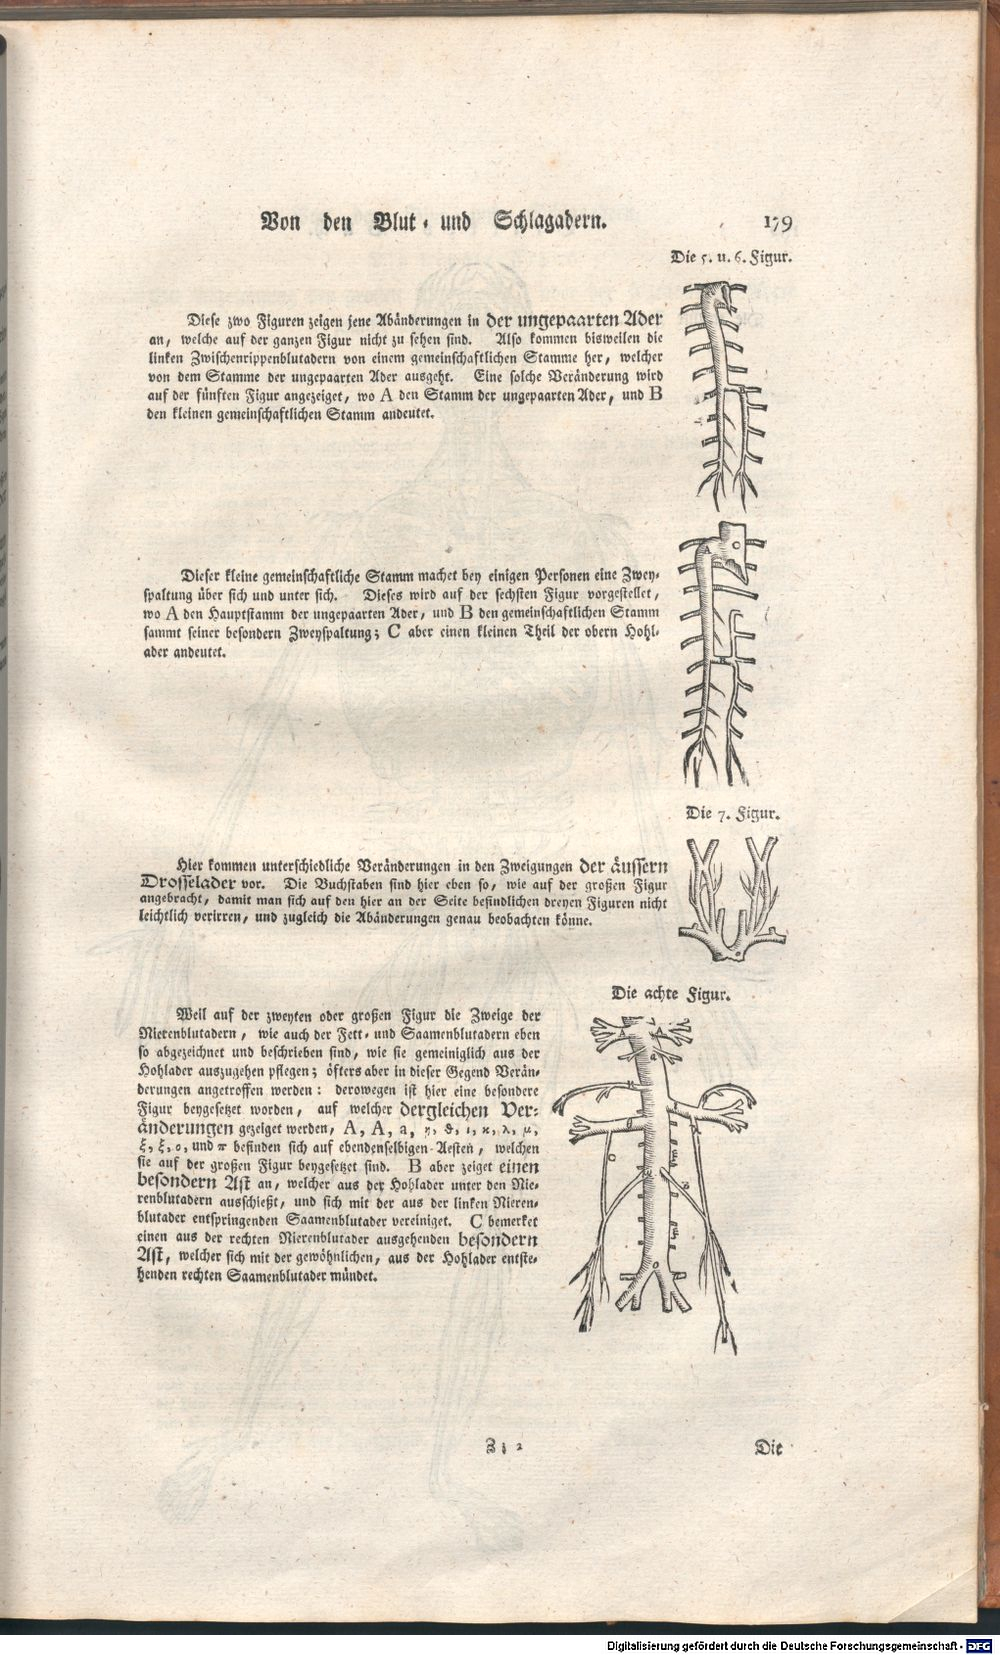 Von den Blut- und Schlagadern. 179
Die 5. u. 6. Figur.
Diese zwo Figuren zeigen jene Abänderungen in der ungepaarten Ader
an, welche auf der ganzen Figur nicht zu sehen sind. Also kommen bisweilen die
linken Zwischenrippenblutadern von einem gemeinschaftlichen Stamme her, welcher
von dem Stamme der ungepaarten Ader ausgeht. Eine solche Veränderung wird
auf der fünften Figur angezeiget, wo A den Stamm der ungepaarten Ader, und B
den kleinen gemeinschaftlichen Stamm andeutet.
Dieser kleine gemeinschaftliche Stamm machet bey einigen Personen eine Zwey-
spaltung über sich und unter sich. Dieses wird auf der sechsten Figur vorgestellet,
wo A den Hauptstamm der ungepaarten Ader, und B den gemeinschaftlichen Stamm
sammt seiner besondern Zweyspaltung; C aber einen kleinen Theil der obern Hohl-
ader andeutet.
Die 7. Figur.
Hier kommen unterschiedliche Veränderungen in den Zweigungen der äussern
Drosselader vor. Die Buchstaben sind hier eben so, wie auf der großen Figur
angebracht, damit man sich auf den hier an der Seite befindlichen dreyen Figuren nicht
leichtlich verirren, und zugleich die Abänderungen genau beobachten könne.
Die achte Figur.
Weil auf der zweyten oder großen Figur die Zweige der
Nierenblutadern, wie auch der Fett- und Saamenblutadern eben
so abgezeichnet und beschrieben sind, wie sie gemeiniglich aus der
Hohlader auszugehen pflegen; öfters aber in dieser Gegend Verän-
derungen angetroffen werden: derowegen ist hier eine besondere
Figur beygesetzet worden, auf welcher dergleichen Ver-
änderungen gezeiget werden, A, A, a, η, ϑ, ι, κ, λ, μ,
ξ, ξ, ο, und π befinden sich auf ebendenselbigen Aesten, welchen
sie auf der großen Figur beygesetzet sind. B aber zeiget einen
besondern Ast an, welcher aus der Hohlader unter den Nie-
renblutadern ausschießt, und sich mit der aus der linken Nieren-
blutader entspringenden Saamenblutader vereiniget. C bemerket
einen aus der rechten Nierenblutader ausgehenden besondern
Ast, welcher sich mit der gewöhnlichen, aus der Hohlader entste-
henden rechten Saamenblutader mündet.
Z z 2 Die
Digitalisierung gefördert durch die Deutsche Forschungsgemeinschaft - DFG